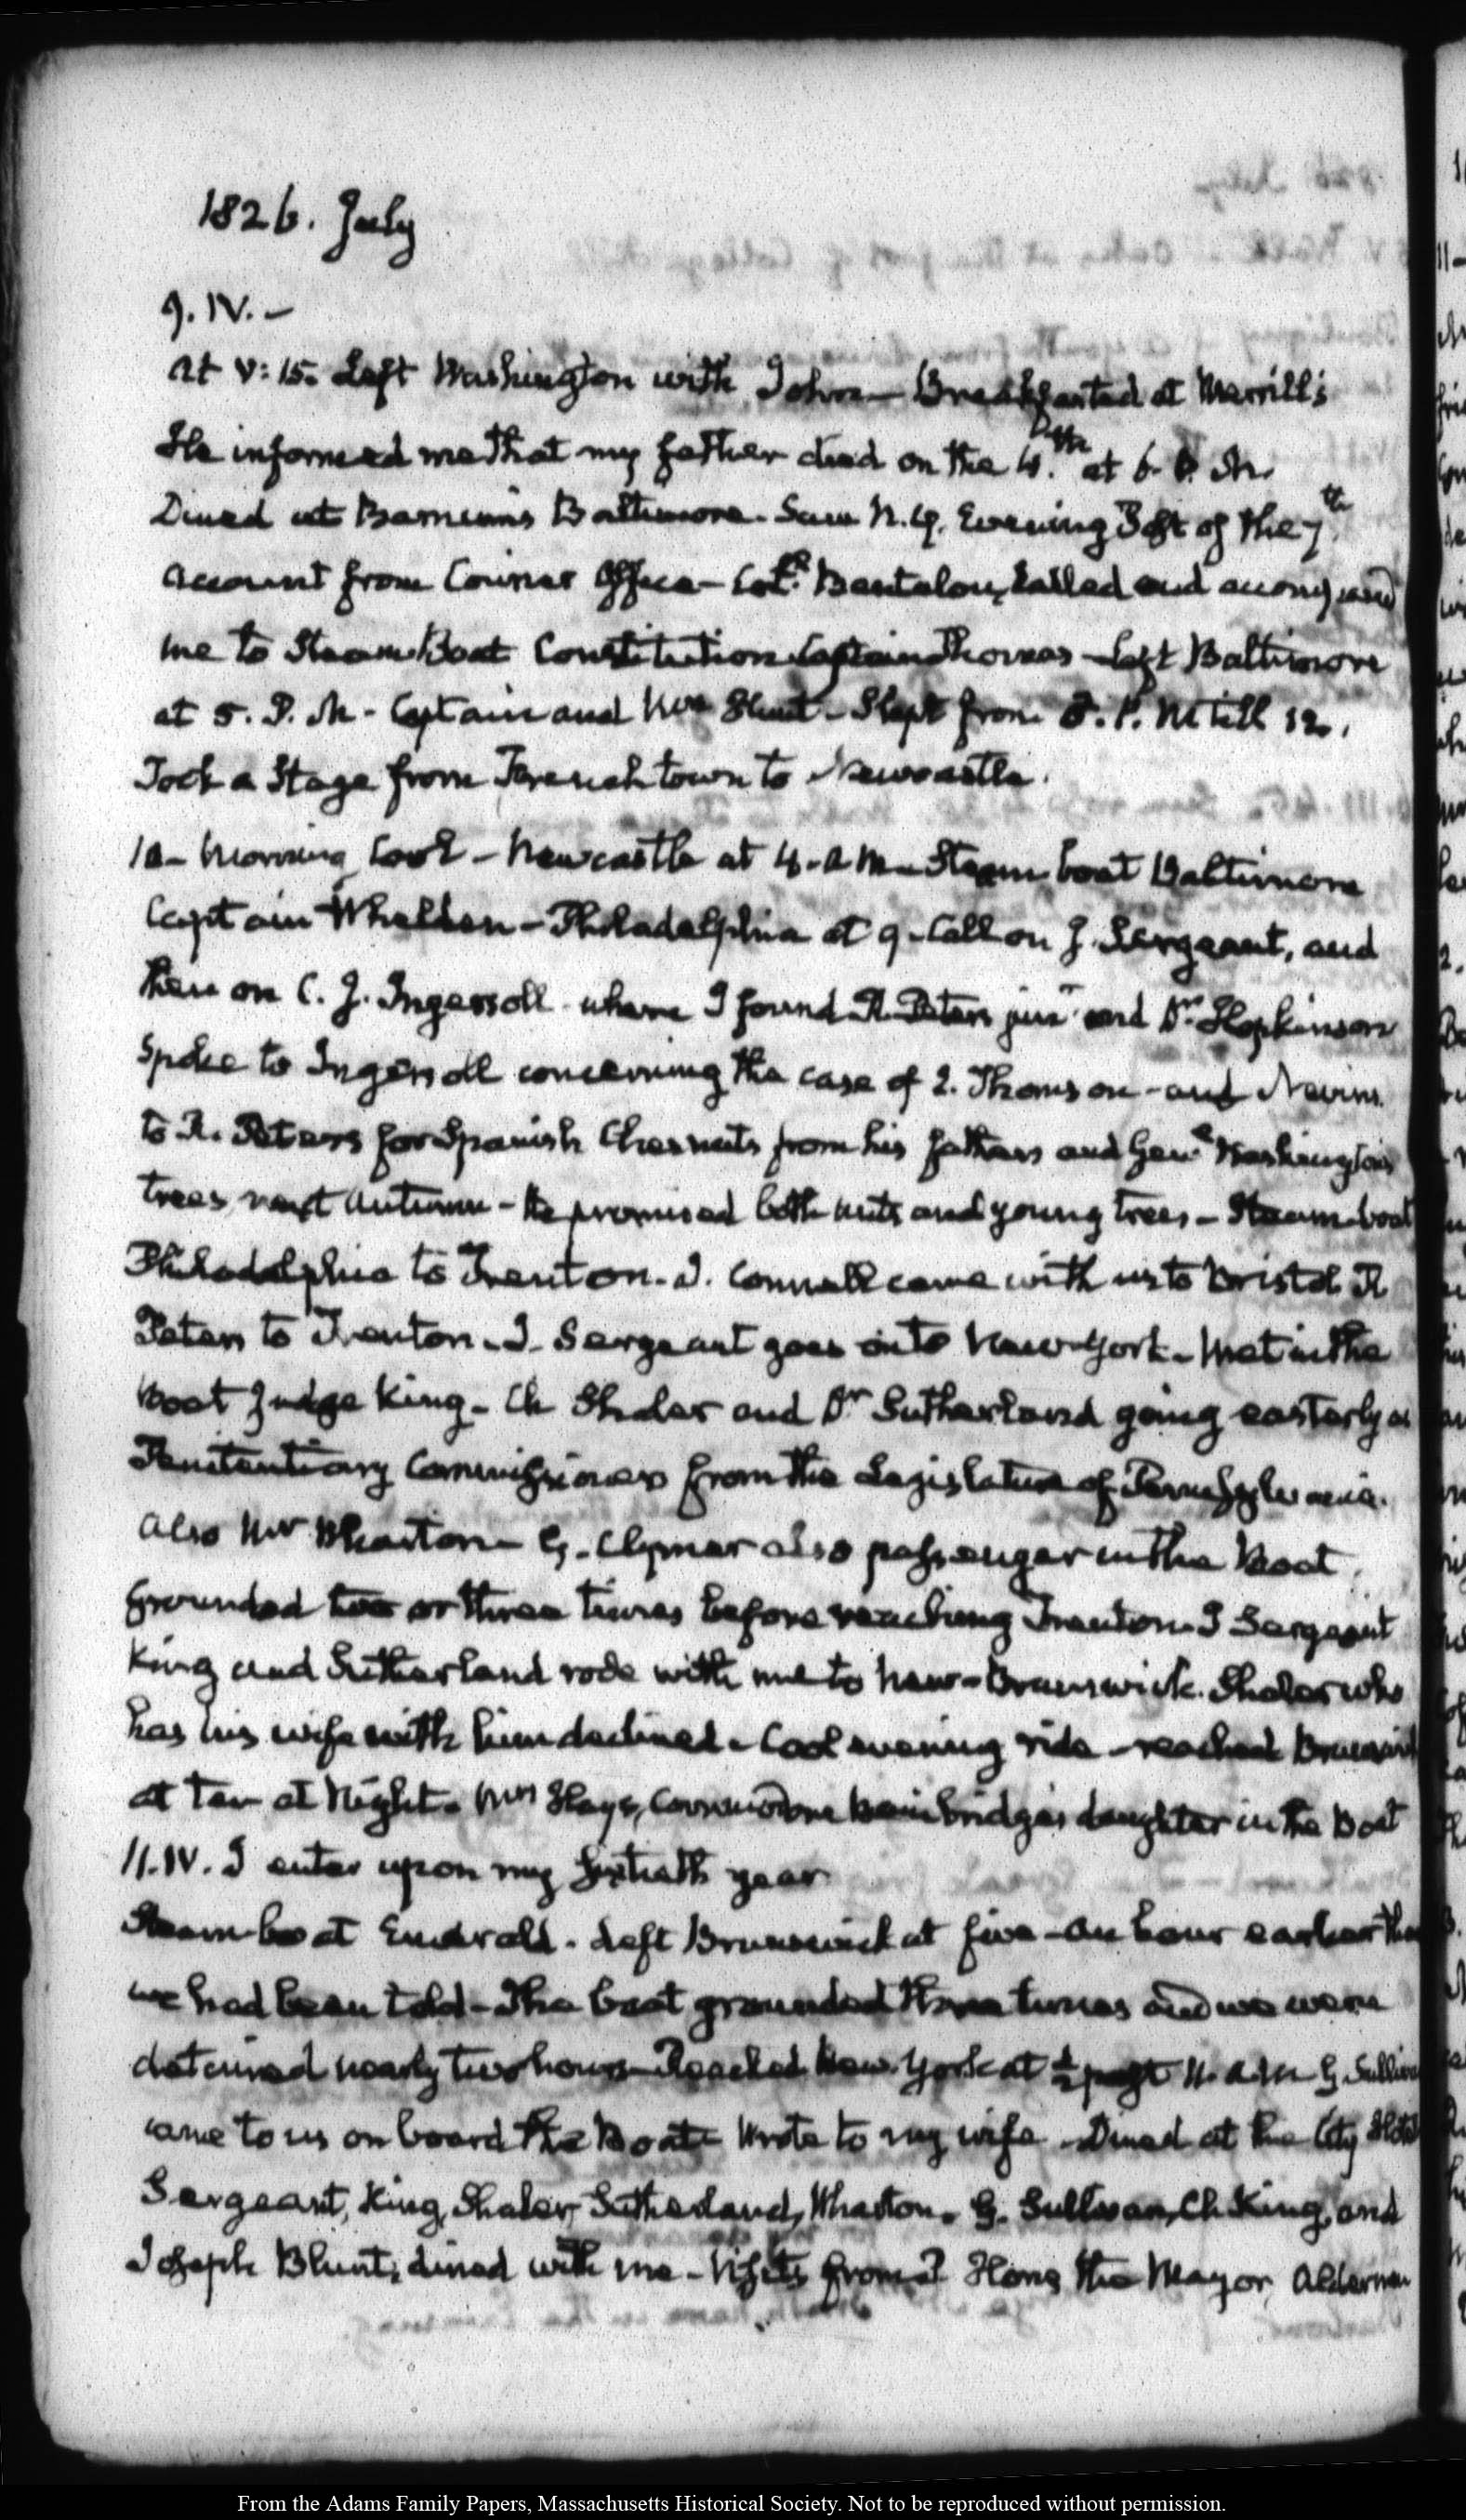 1826. July
9. IV. —
At V: 15. Left Washington with John — Breakfasted at Merrill's
He informed me that my father died on the 4.th at 6. P. M.
Dined at Barnum's Baltimore. Saw N. Y. Evening Post of the 7th
Account from Courier Office — Coll. Bentalou, called and accompanied
me to Steam Boat Constitution Captain Thomas — Left Baltimore
at 5. P. M. - Captain and Mrs Hunt - Slept from 8. P. M till 12.
Took a Stage from Frenchtown to Newcastle.
10 - Morning Cool - Newcastle at 4. A M — Steam boat Baltimore
Captain Whelden - Philadelphia at 9 - Call on J. Sergeant, and
then on C. J. Ingersoll where I found R. Peters junr and Dr. Hopkinson
Spoke to Ingersoll concerning the case of E. Thomson - and Nevins.
to R. Peters for Spanish Chesnuts from his fathers and Genl Washington's
trees next Autumn - He promised both nuts and young trees - Steam-boat
Philadelphia to Trenton. J. Connell came with us to Bristol R
Peters to Trenton. J. Sergeant goes on to New-York - Met in the
Boat Judge King - Ch Shaler and Dr Sutherland going easterly as
Penitentiary Commissioners from the Legislature of Pennsylvania.
Also Mr Wharton - G. Clymer also passenger in the Boat.
Grounded two or three times before reaching Trenton. J Sergeant
King and Sutherland rode with me to New-Brunswick. Shaler who
has his wife with him declined - Cool evening ride - reached Brunswick
at ten at Night. Mrs Hays, Commodore Bainbridge's daughter in the Boat
11. IV. I enter upon my Sixtieth year
Steam-boat Emerald. Left Brunswick at five - An hour earlier than
we had been told - The boat grounded three times and we were
detained nearly two hours - Reached New-York at ½ past 11. A. M G Sullivan
came to us on board the Boat - Wrote to my wife - Dined at the City Hotel
Sergeant, King, Shaler, Sutherland, Wharton. G. Sullivan, Ch. King, and
Joseph Blunt, dined with me - Visits from P Hone, the Mayor, Aldermen
From the Adams Family Papers, Massachusetts Historical Society. Not to be reproduced without permission.